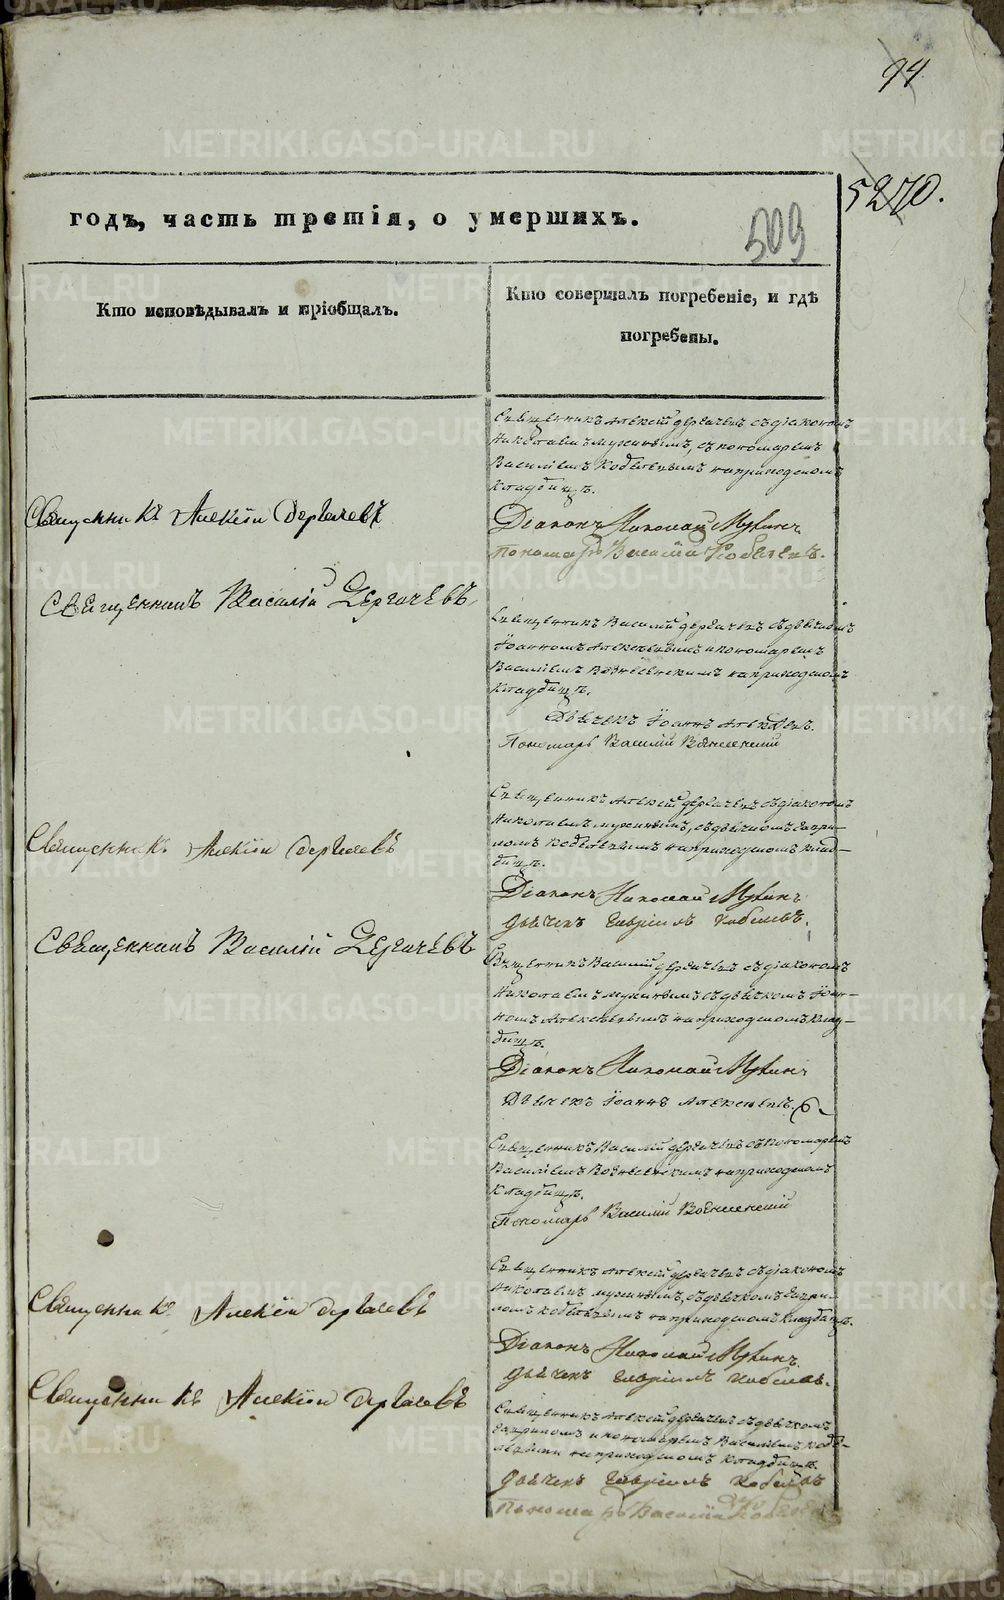 94
5270.
годъ, часть третія, о умершихъ.
509
Кто исповѣдывалъ и пріобщалъ.
Кто совершалъ погребеніе, и гдѣ
погребены.
Священникъ Алексій Дергачевъ съ діакономъ
Николаемъ Мухинымъ, съ пономаремъ
Василіемъ Кобелевымъ на приходскомъ
кладбищѣ.
Священникъ Алексій Дергачевъ
Діаконъ Николай Мухинъ
Пономарь Василій Кобелевъ.
Священникъ Василій Дергачевъ
Священникъ Василій Дергачевъ съ дьячкомъ
Іоанномъ Алексѣевымъ и пономаремъ
Василіемъ Вознесенскимъ на приходскомъ
кладбищѣ.
Дьячекъ Іоаннъ Алексѣевъ.
Пономарь Василій Вознесенский
Священникъ Алексій Дергачевъ съ діакономъ
Николаемъ Мухинымъ, съ дьячкомъ Гаври-
ломъ Кобелевымъ на приходскомъ клад-
бищѣ.
Священникъ Алексій Дергачевъ
Діаконъ Николай Мухинъ
Дьячекъ Гавріилъ Кобелевъ.
Священникъ Василій Дергачевъ
Священникъ Василій Дергачевъ съ діакономъ
Николаемъ Мухинымъ съ дьячкомъ Іоан-
номъ Алексѣевымъ на приходскомъ клад-
бищѣ.
Діаконъ Николай Мухинъ
Дьячекъ Іоаннъ Алексѣевъ.
Священникъ Василій Дергачевъ съ пономаремъ
Василіемъ Вознесенскимъ на приходскомъ
кладбищѣ.
Пономарь Василій Вознесенский
Священникъ Алексій Дергачевъ съ діакономъ
Николаемъ Мухинымъ, съ дьячкомъ Гаври-
ломъ Кобелевымъ на приходскомъ кладбищѣ.
Священникъ Алексій Дергачевъ
Діаконъ Николай Мухинъ.
Дьячекъ Гавріилъ Кобелевъ.
Священникъ Алексій Дергачевъ
Священникъ Алексій Дергачевъ съ дьячкомъ
Гавриломъ и пономаремъ Василіемъ Кобе-
левыми на приходскомъ кладбищѣ.
Дьячекъ Гавріилъ Кобелевъ
Пономарь Василій Кобелевъ
METRIKI.GASO-URAL.RU